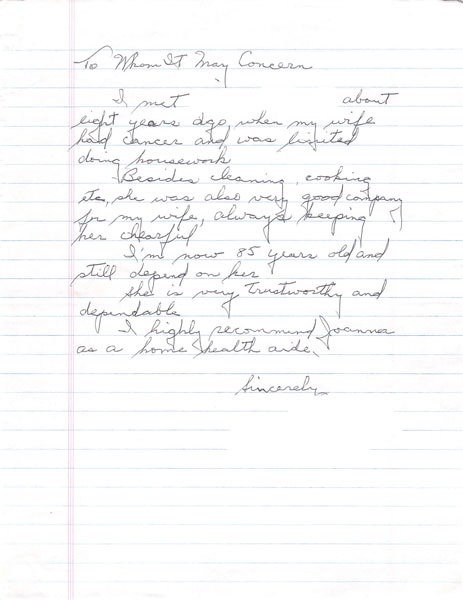 To Whom It May Concern
I met about
eight years ago, when my wife
had cancer and was limited
doing housework
Besides cleaning, cooking
etc, she was also very good company
for my wife, always keeping
her chearful
I'm now 85 years old and
still depend on her
She is very trustworthy and
dependable
I highly recommend Joanna
as a home health aide.
Sincerely